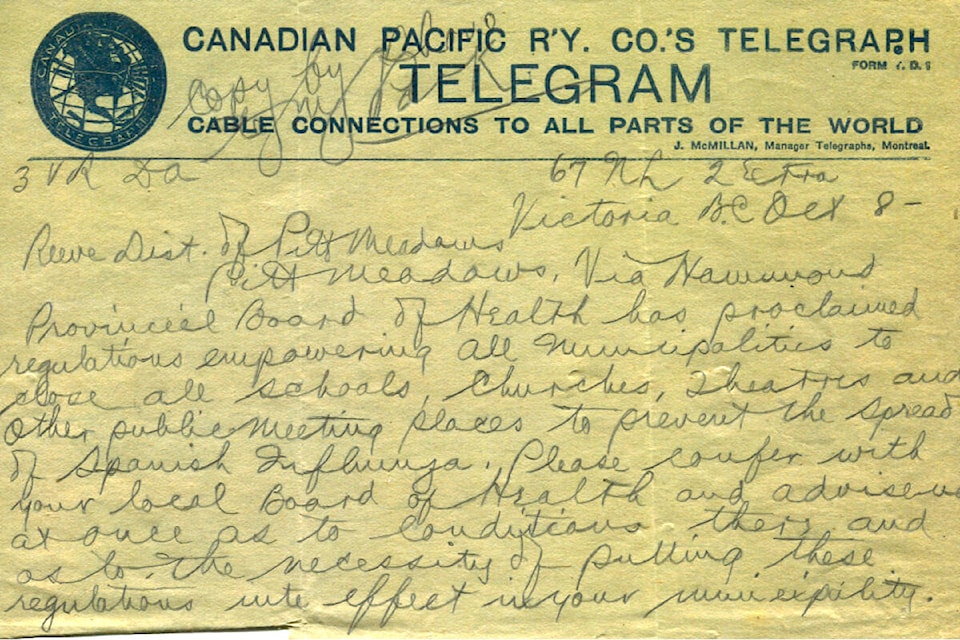 CANADIAN PACIFIC R'Y. CO.'S TELEGRAPH
FORM T. D. 1
TELEGRAM
CABLE CONNECTIONS TO ALL PARTS OF THE WORLD
J. McMILLAN, Manager Telegraphs, Montreal.
copy by
3 VR Da 67 NL 2 Extra
Victoria B.C Oct 8-
Reeve Dist. of Pitt Meadows
Pitt Meadows, Via Hammond
Provinciel Board of Health has proclaimed
regulations empowering all Municipalities to
close all schools, Churches, Theatres and
other public Meeting places to prevent the spread
of Spanish Influnza. Please confer with
your local Board of Health and advise us
at once as to conditions there and
as to the necessity of putting these
regulations into effect in your municipility.